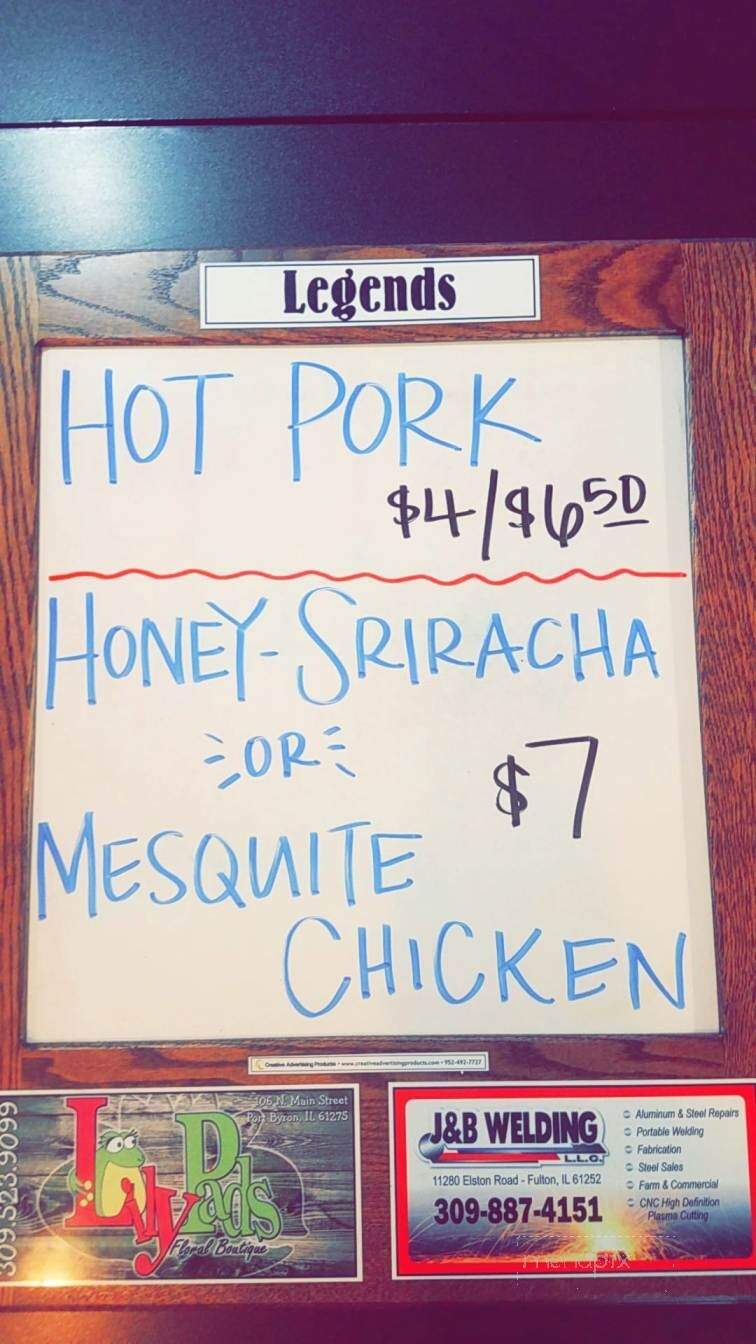 Legends
HOT PORK
$4/$6 50
HONEY-SRIRACHA
OR
$7
MESQUITE
CHICKEN
Creative Advertising Products • www.creativeadvertisingproducts.com • 952-492-7727
309.523.9099
106 N. Main Street
Port Byron, IL 61275
Lily Pads
Floral Boutique
J&B WELDING
L.L.C.
11280 Elston Road - Fulton, IL 61252
309-887-4151
Aluminum & Steel Repairs
Portable Welding
Fabrication
Steel Sales
Farm & Commercial
CNC High Definition
Plasma Cutting
menupix